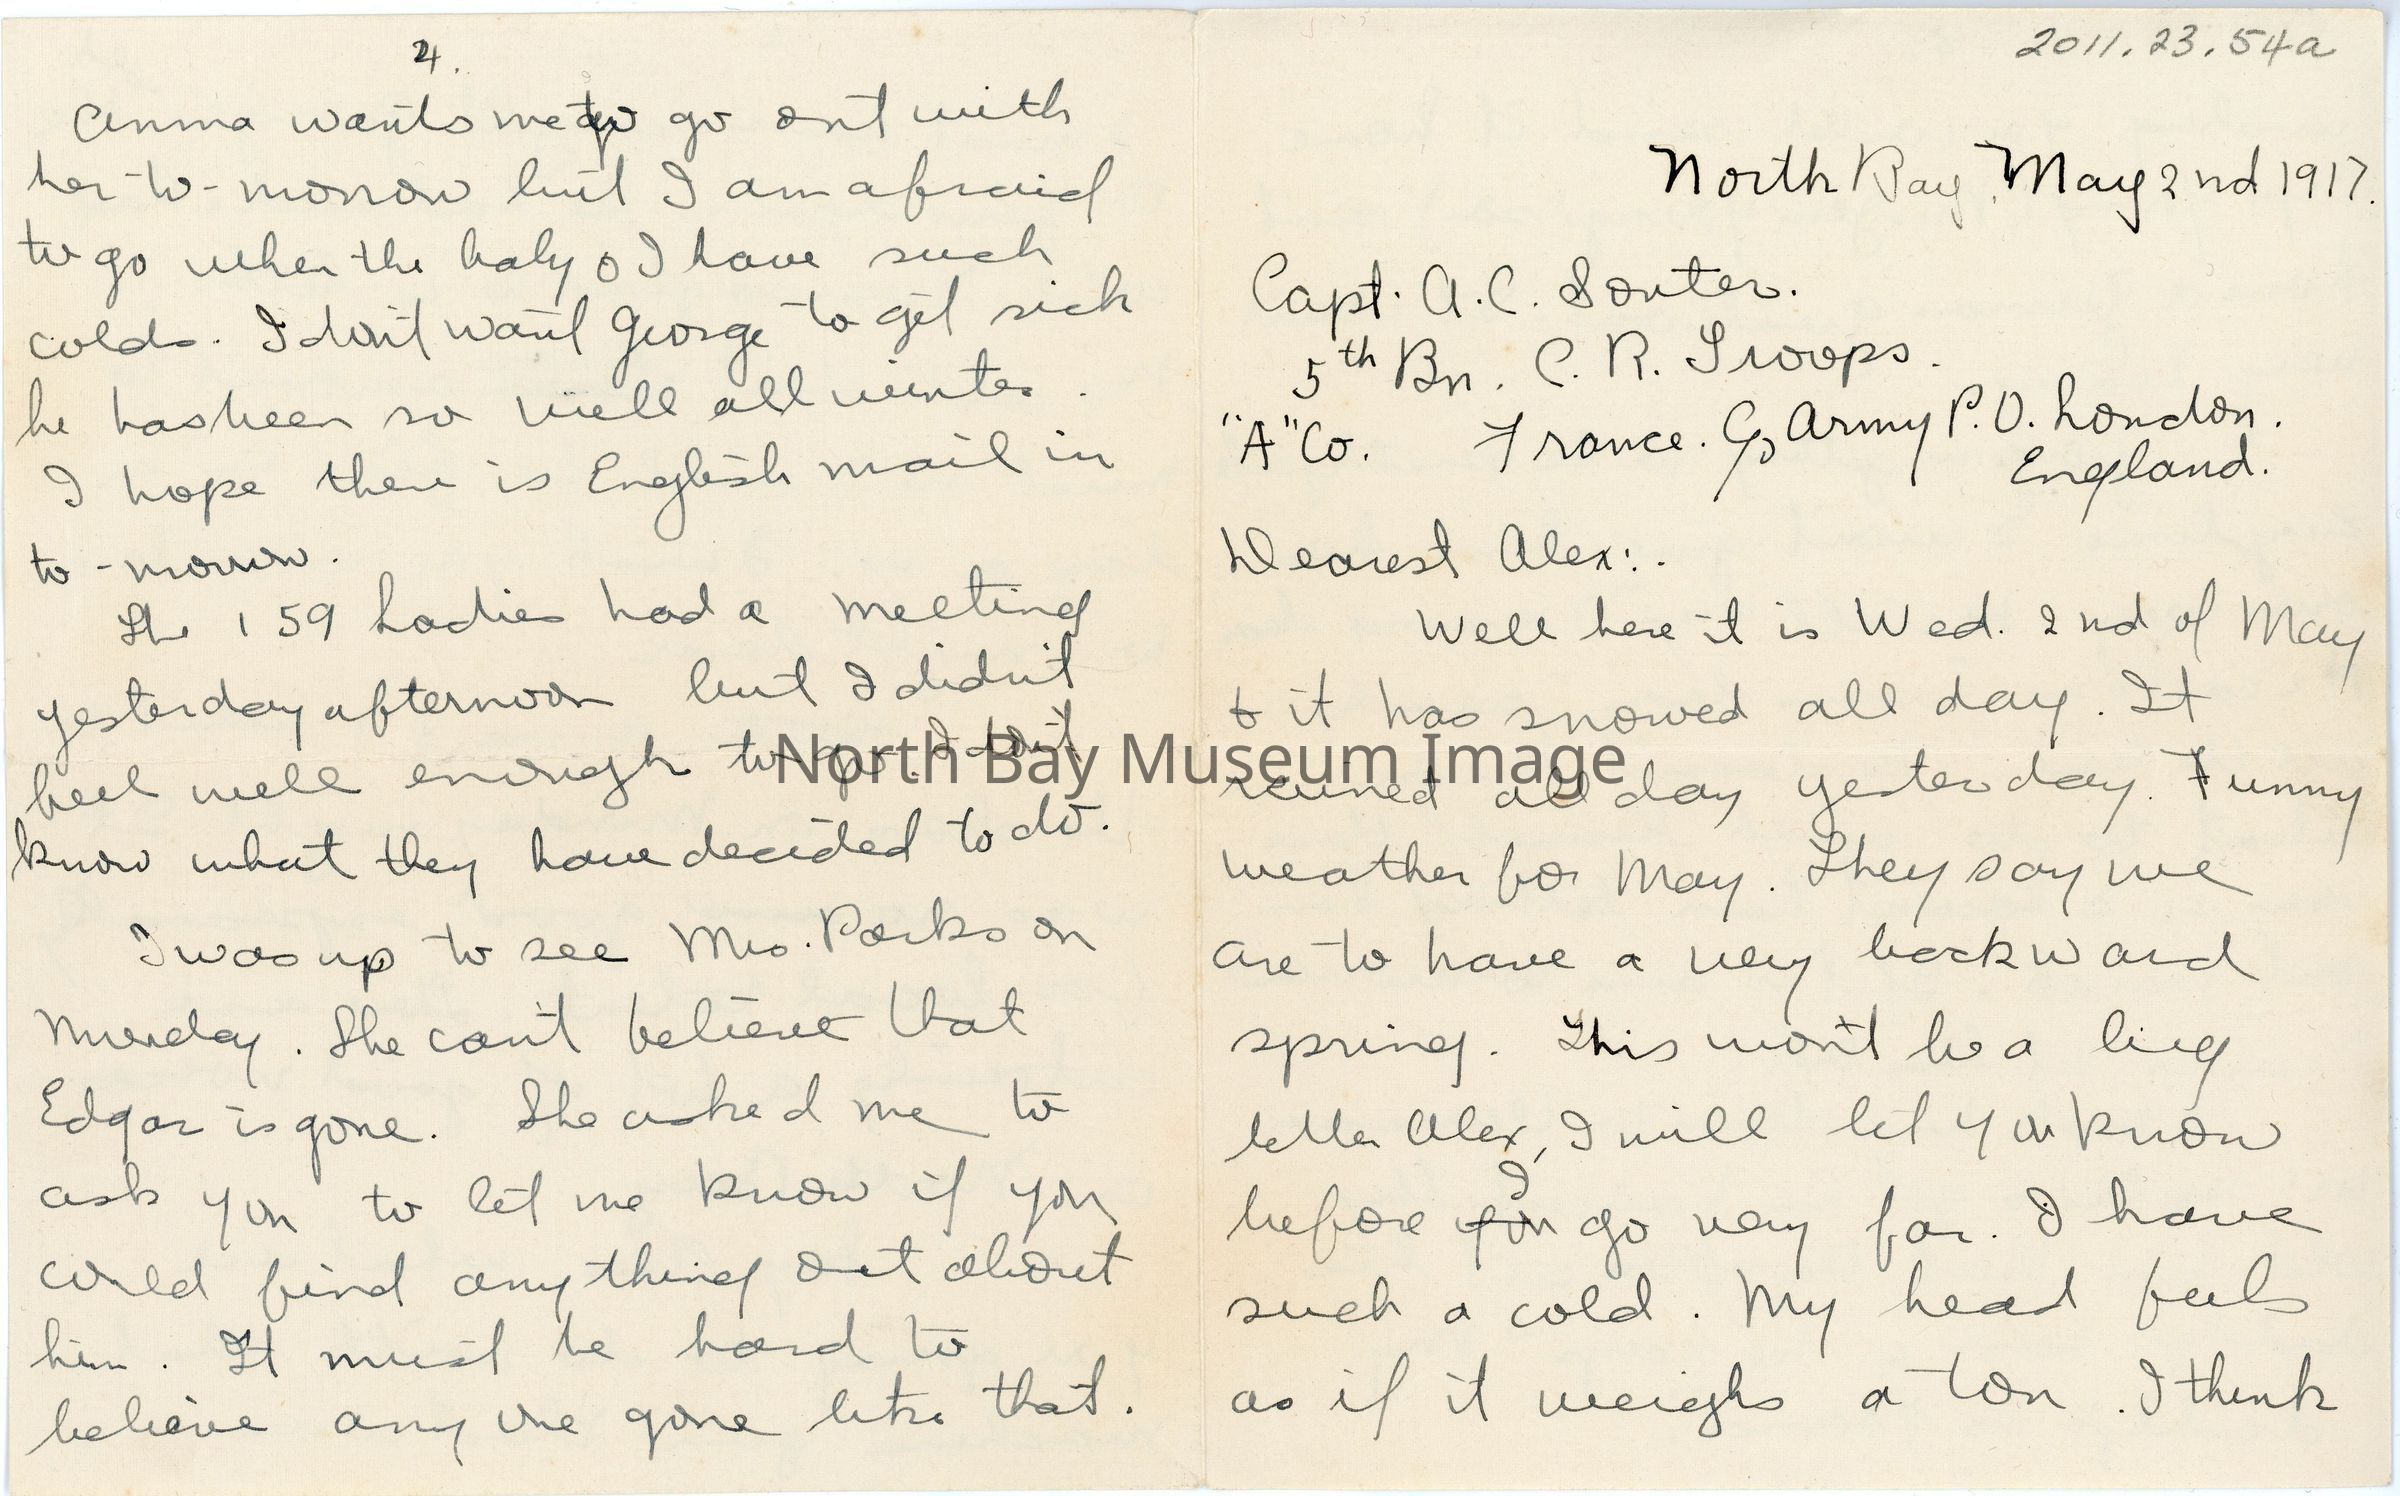 2011.23.54a
North Bay, May 2nd 1917.
Capt. A.C. Souter.
5th Bn. C. R. Troops.
"A" Co. France. C/o Army P.O. London.
England.
Dearest Alex:.
Well here it is Wed. 2nd of May
& it has snowed all day. It
rained all day yesterday. Funny
weather for May. They say we
are to have a very backward
spring. This won't be a big
letter Alex, I will let you know
before you I go very far. I have
such a cold. My head feels
as if it weighs a ton. I think
4.
Anma wants me to go out with
her to-morrow but I am afraid
to go when the baby & I have such
colds. I don't want George to get sick
he has been so well all winter.
I hope there is English mail in
to-morrow.
The 159 Ladies had a meeting
yesterday afternoon but I didn't
feel well enough to go. I don't
know what they have decided to do.
I was up to see Mrs. Parks on
Monday. She can't believe that
Edgar is gone. She asked me to
ask you to let me know if you
could find anything out about
him. It must be hard to
believe any one gone like that.
North Bay Museum Image